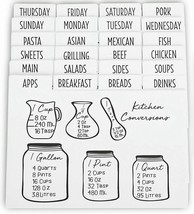 THURSDAY FRIDAY SATURDAY PORK
SUNDAY MONDAY TUESDAY WEDNESDAY
PASTA ASIAN MEXICAN FISH
SWEETS GRILLING BEEF CHICKEN
MAIN SALADS SIDES SOUPS
APPS BREAKFAST BREADS DRINKS
Kitchen Conversions
1 Cup
8 OZ
240 ML
16 Tbsp
1 Gallon
4 Quarts
8 Pints
16 Cups
128 OZ
3.8 Liters
1 Pint
2 Cups
16 OZ
32 Tbsp
480 ML
1 Quart
2 Pints
4 Cups
32 OZ
.95 Liters